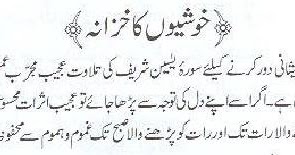 خوشیوں کا خزانہ
یثانی دور کرنے کیلئے سورۂ یٰسین شریف کی تلاوت عجیب مجرب عم
ہے۔ اگر اسے اپنے دل کی توجہ سے پڑھا جائے تو عجیب اثرات محسوس
والا رات تک اور رات کو پڑھنے والا صبح تک غموم و ہموم سے محفوظ